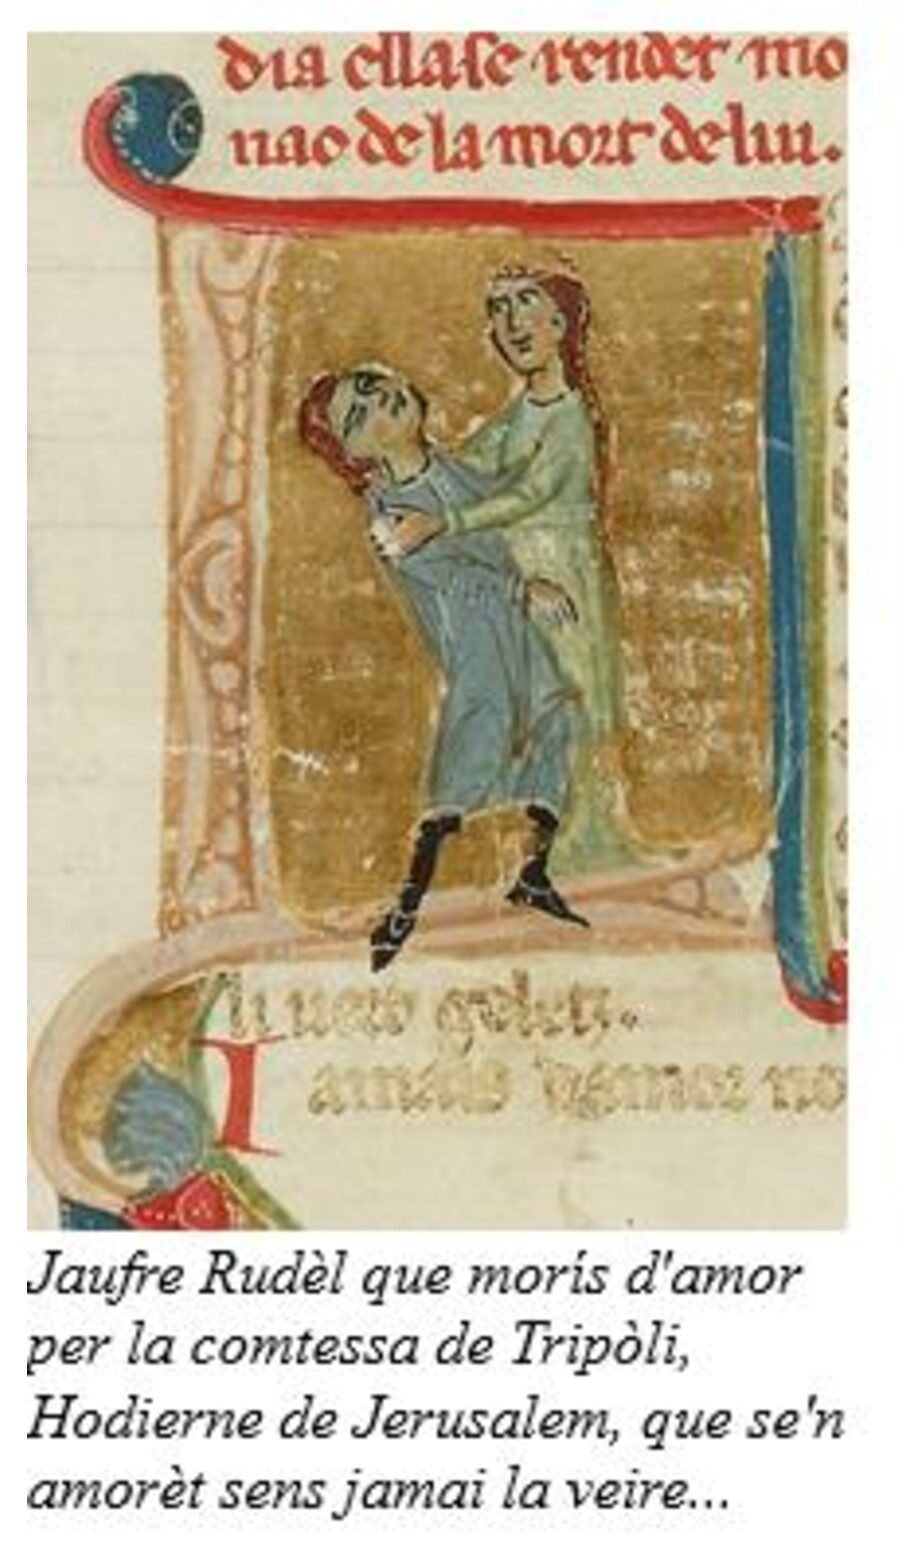 dia ellase rendet mo
nao de la mort de lui.
I
amads
Jaufre Rudèl que morís d'amor
per la comtessa de Tripòli,
Hodierne de Jerusalem, que se'n
amorèt sens jamai la veire...